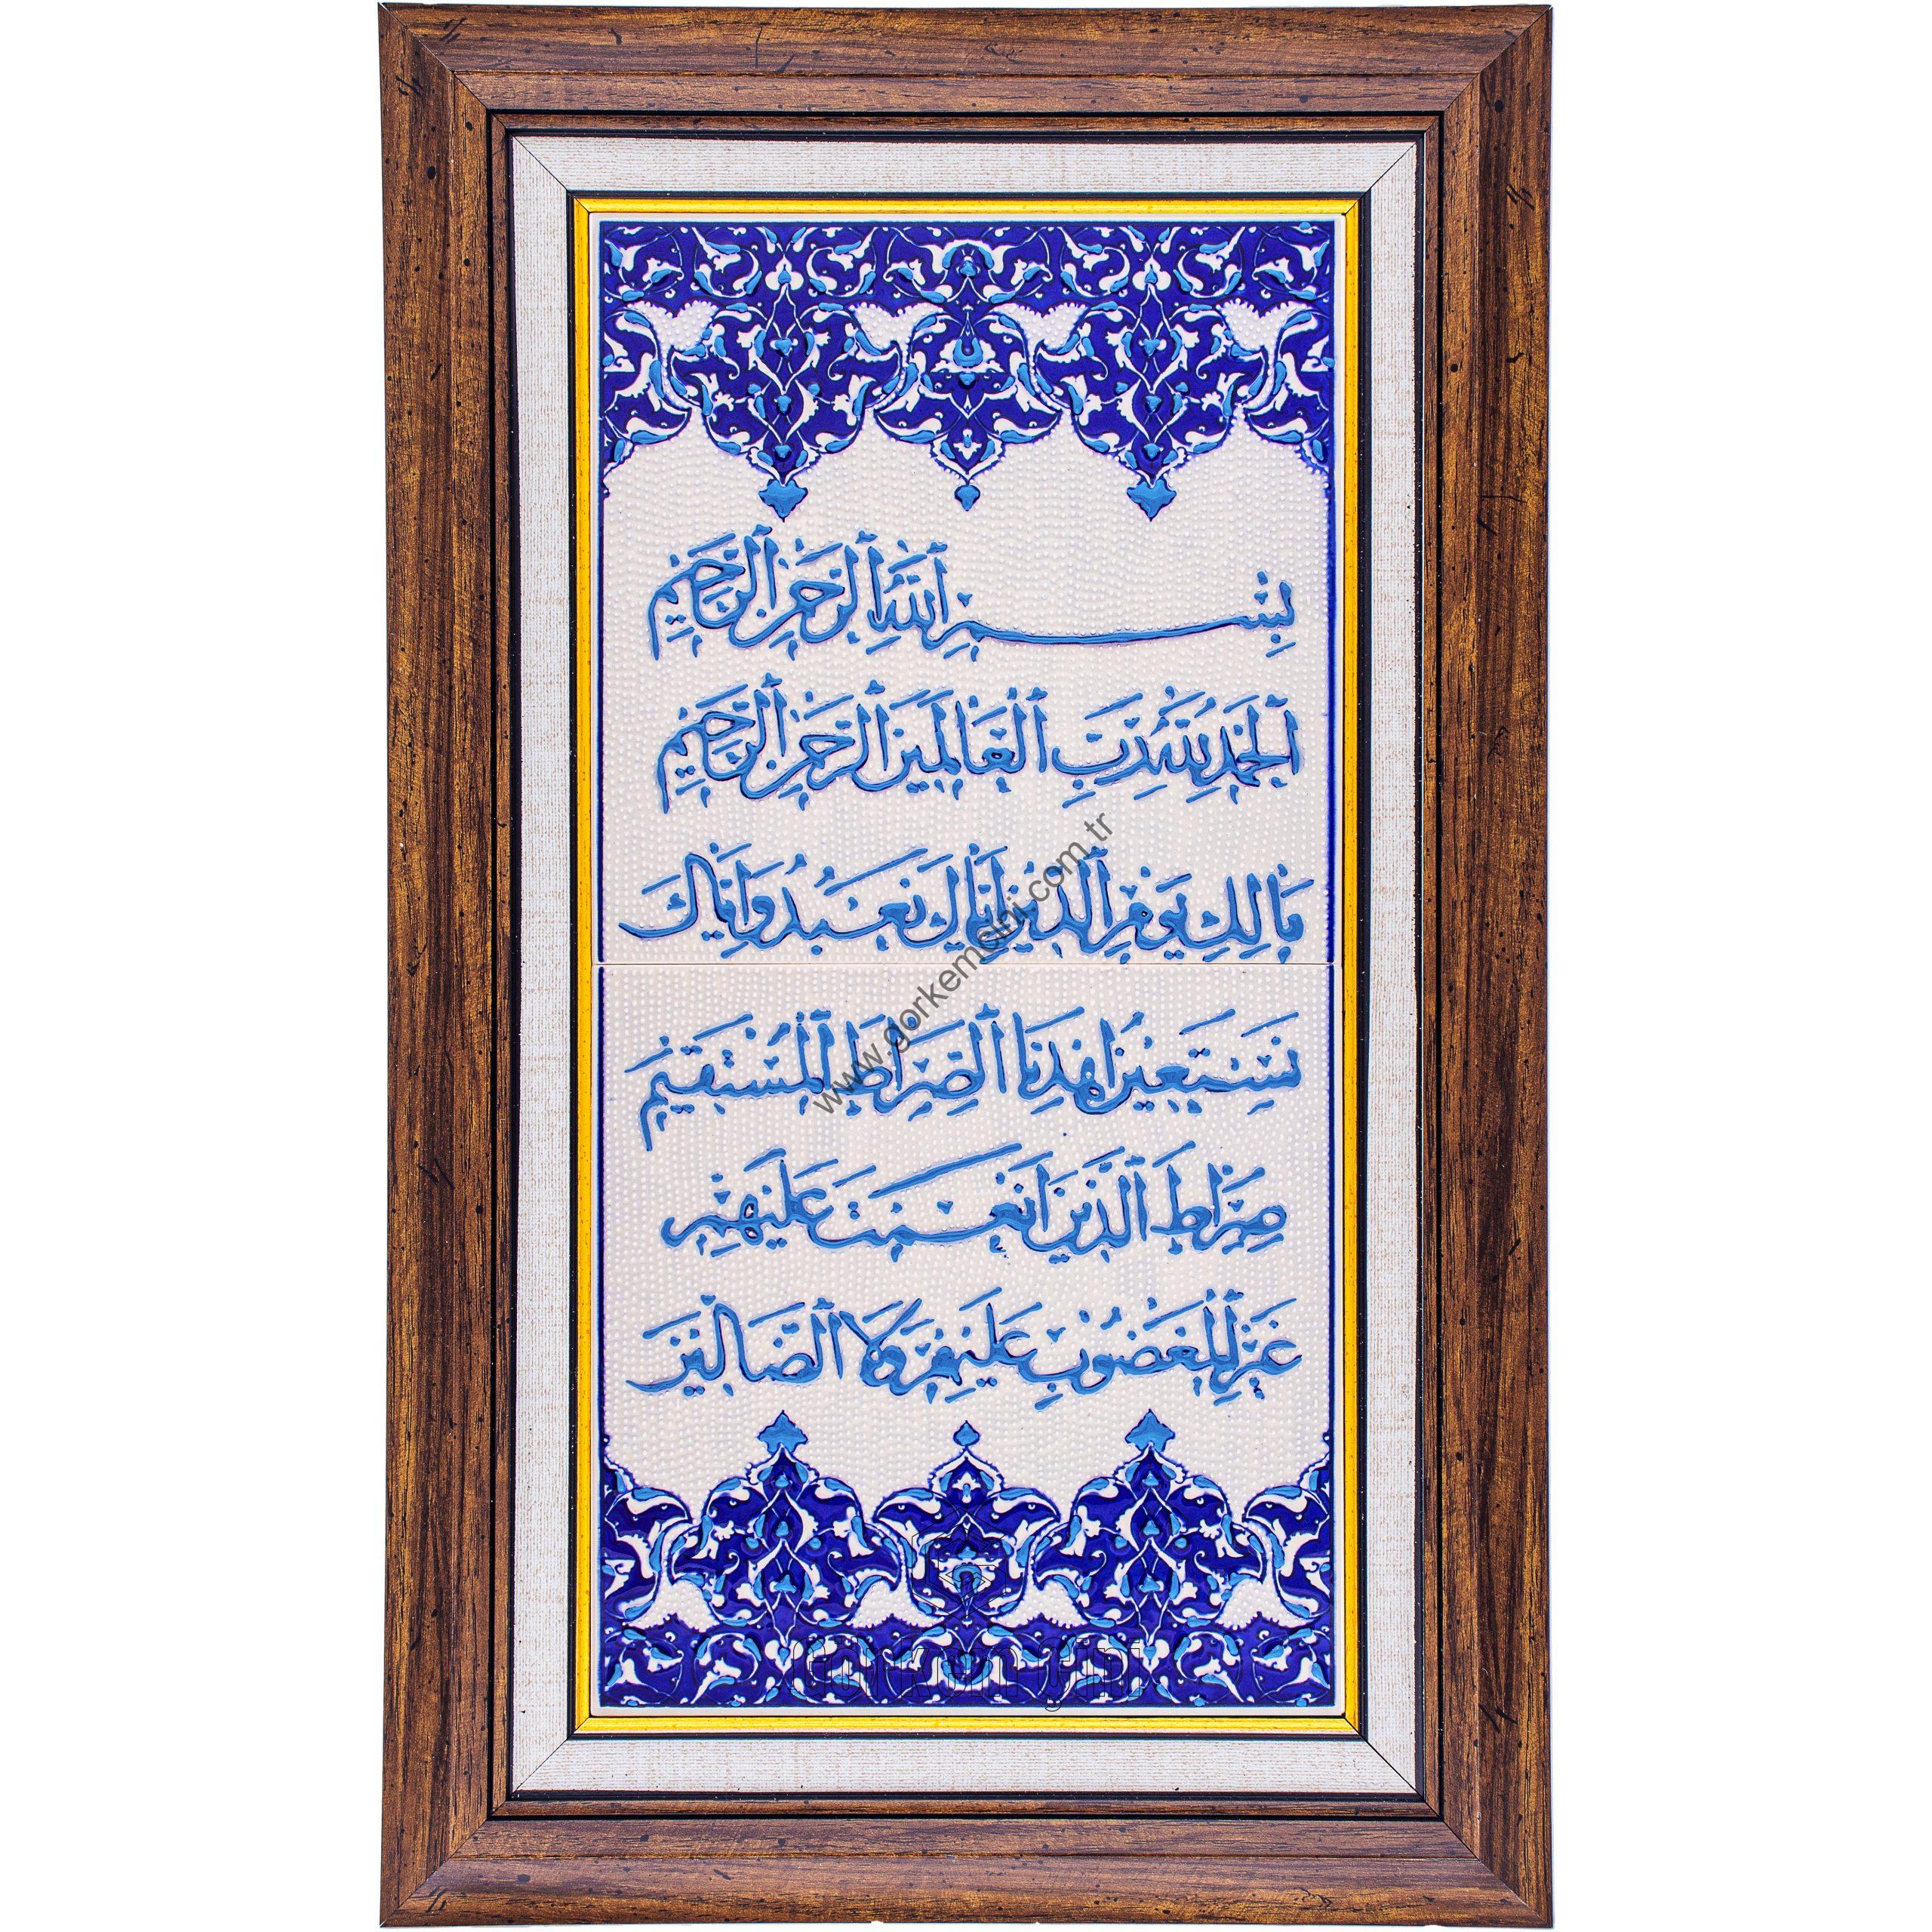 بِسْمِ اللَّهِ الرَّحْمَنِ الرَّحِيمِ
الْحَمْدُ لِلَّهِ رَبِّ الْعَالَمِينَ الرَّحْمَنِ الرَّحِيمِ
مَالِكِ يَوْمِ الدِّينِ إِيَّاكَ نَعْبُدُ وَإِيَّاكَ
نَسْتَعِينُ اهْدِنَا الصِّرَاطَ الْمُسْتَقِيمَ
صِرَاطَ الَّذِينَ أَنْعَمْتَ عَلَيْهِمْ
غَيْرِ الْمَغْضُوبِ عَلَيْهِمْ وَلَا الضَّالِّينَ
www.gorkemcini.com.tr
Görkem Çini